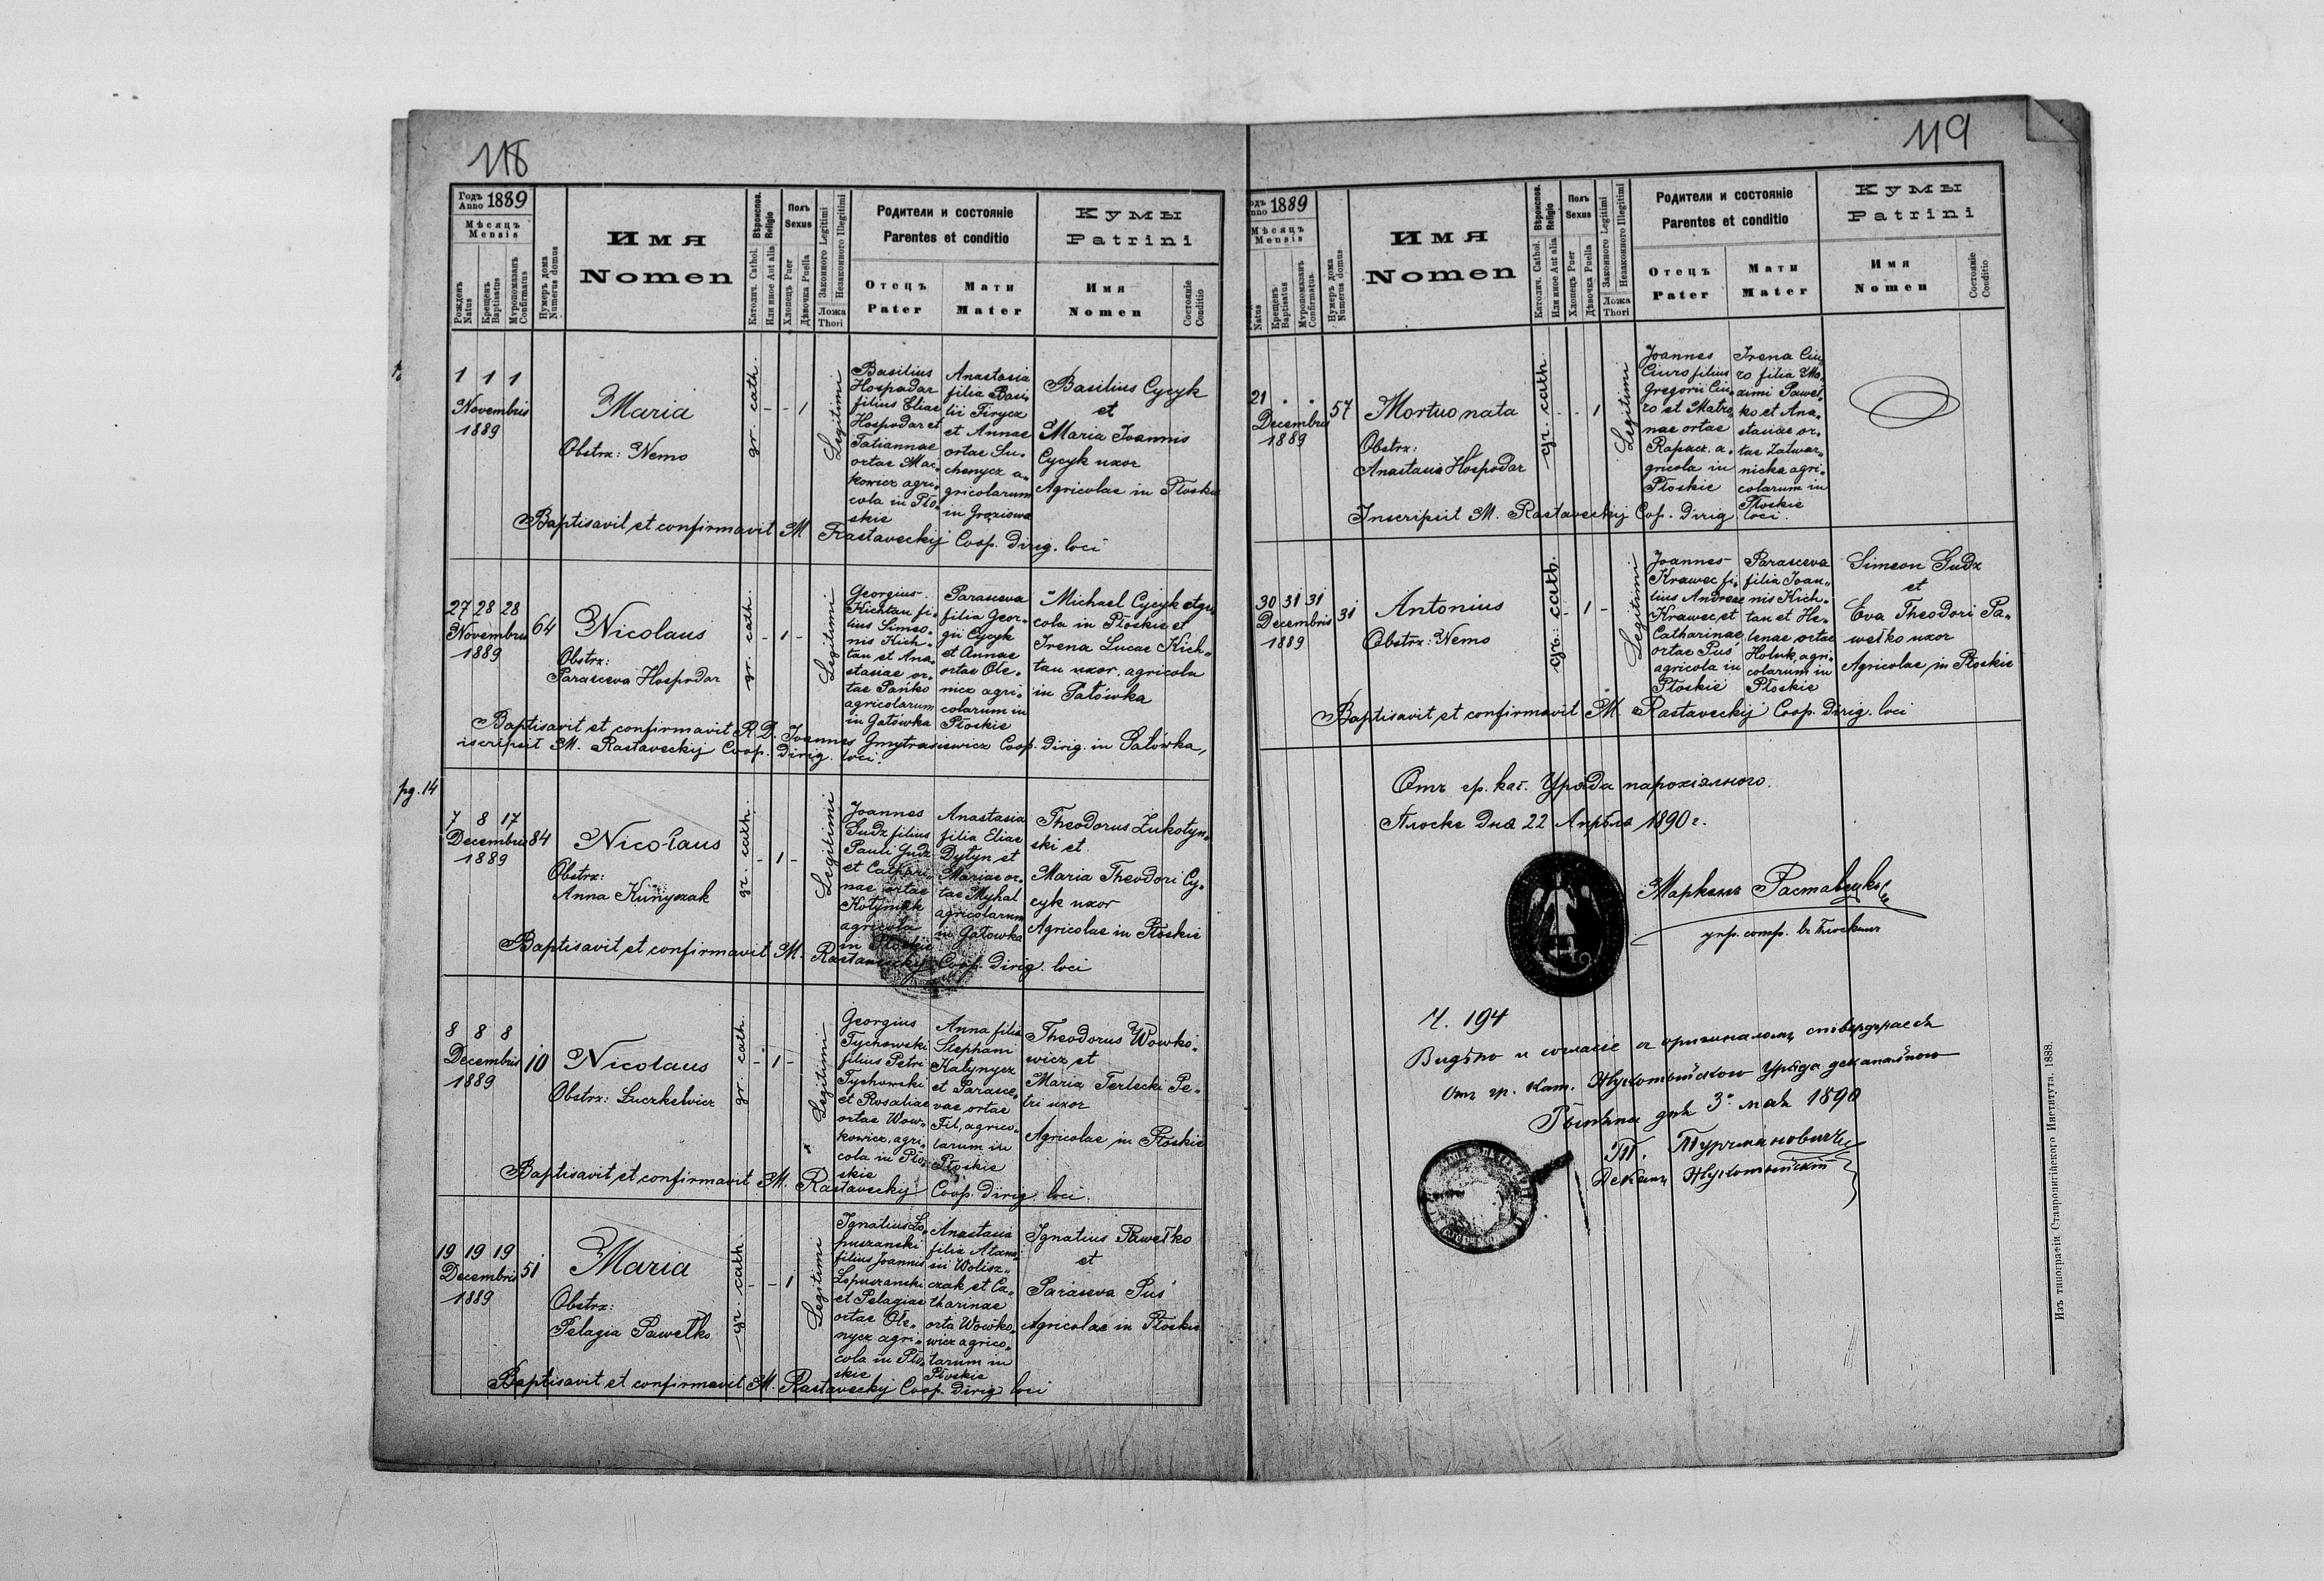 118
Годъ Anno 1889
Мѣсяцъ
Mensis
Рожденъ Natus
Крещенъ Baptisatus
Мѵропомазанъ Confirmatus
Нумеръ дома Numerus domus
Имя
Nomen
Вѣроисповѣд. Religio
Католич. Cathol.
Или иное Aut alia
Полъ
Sexus
Хлопецъ Puer
Дѣвочка Puella
Законного Legitimi
Незаконного Illegitimi
Ложа
Thori
Родители и состояніе
Parentes et conditio
Отецъ
Pater
Мати
Mater
Кумы
Patrini
Имя
Nomen
Состояніе
Conditio
1 1 1
Novembris
1889
Maria
Obstrx: Nemo
gr. cath.
- - 1
Legitimi
Basilius
Hospodar
filius Eliae
Hospodar et
Tatiannae
ortae Mac-
kowicz agri-
cola in Pło-
skie
Anastasia
filia Basi-
lii Firycz
et Annae
ortae Su-
chenycz a-
gricolarum
in Groziowa
Basilius Cycyk
et
Maria Joannis
Cycyk uxor
Agricolae in Płoskie
Baptisavit et confirmavit M. Rastaveckij Coop. dirig. loci
27 28 28
Novembris
1889
64
Nicolaus
Obstrx:
Parasceva Hospodar
gr. cath.
- 1 -
Legitimi
Georgius
Kichtan fi-
lius Simeo-
nis Kich-
tan et Ana-
stasiae or-
tae Pańko
agricolarum
in Gałówka
Parasceva
filia Geor-
gii Cycyk
et Annae
ortae Ole-
nicz agri-
colarum in
Płoskie
Michael Cycyk agri
cola in Płoskie et
Irena Lucae Kich-
tan uxor, agricola
in Gałówka
Baptisavit et confirmavit R. D. Joannes Gmytrasiewicz Coop. dirig. in Gałówka,
iscripsit M. Rastaveckij Coop. dirig. loci.
pg. 14
7 8 17
Decembris
1889
84
Nicolaus
Obstrx:
Anna Kunyszak
gr. cath.
- 1 -
Legitimi
Joannes
Gudz filius
Pauli Gudz
et Cathari-
nae ortae
Kotyniak
agricola
in Płoskie
Anastasia
filia Eliae
Dytyn et
Mariae or-
tae Myhal
agricolarum
in Gałowka
Theodorus Żukotyn-
ski et
Maria Theodori Cy-
cyk uxor
Agricolae in Płoskie
Baptisavit et confirmavit M. Rastaveckij Coop. dirig. loci
8 8 8
Decembris
1889
10
Nicolaus
Obstrx: Luczkewicz
gr. cath.
- 1 -
Legitimi
Georgius
Tychowski
filius Petri
Tychowski
et Rosaliae
ortae Wow-
kowicz, agri-
cola in Pło-
skie
Anna filia
Stephani
Kalynycz
et Parasce-
vae ortae
Fil, agrico-
larum in
Płoskie
Theodorus Wowko-
wicz et
Maria Terlecki Pe-
tri uxor
Agricolae in Płoskie
Baptisavit et confirmavit M. Rastaveckij Coop. dirig. loci.
19 19 19
Decembris
1889
51
Maria
Obstrx:
Pelagia Pawełko
gr. cath.
- - 1
Legitimi
Ignatius Ło-
puszanski
filius Joannis
Łopuszanski
et Pelagiae
ortae Ole-
nycz agri-
cola in Pło-
skie
Anastasia
filia Atana-
sii Wolisz-
czak et Ca-
tharinae
orta Wowko-
wicz agrico-
larum in
Płoskie
Ignatius Pawełko
et
Parasceva Pus
Agricolae in Płoskie
Baptisavit et confirmavit M. Rastaveckij Coop. dirig. loci
119
1889
Мѣсяцъ
Mensis
Natus
Крещенъ Baptisatus
Мѵропомазанъ Confirmatus
Нумеръ дома Numerus domus
Имя
Nomen
Religio
Католич. Cathol.
Или иное Aut alia
Полъ
Sexus
Хлопецъ Puer
Дѣвочка Puella
Законного Legitimi
Незаконного Illegitimi
Ложа
Thori
Родители и состояніе
Parentes et conditio
Отецъ
Pater
Мати
Mater
Кумы
Patrini
Имя
Nomen
Состояніе
Conditio
21 . .
Decembris
1889
57
Mortuo nata
Obstrx:
Anastasia Hospodar
gr. cath.
- - 1
Legitimi
Joannes
Ciuro filius
Gregorii Ciu-
ro et Matro-
nae ortae
Rapacz. a-
gricola in
Płoskie
Irena Ciu-
ro filia Ma-
ximi Paweł-
ko et Ana-
stasiae or-
tae Zatwar-
nicka agri-
colarum in
Płoskie
Inscripsit M. Rastaveckij Cop. dirig loci.
30 31 31
Decembris
1889
31
Antonius
Obstrx: Nemo
gr. cath.
- 1 -
Legitimi
Joannes
Krawec fi-
lius Andreae
Krawec et
Catharinae
ortae Pus
agricola in
Płoskie
Parasceva
filia Joan-
nis Kich-
tan et He-
lenae ortae
Holuk, agri-
colarum in
Płoskie
Simeon Gudz
et
Eva Theodori Pa-
wełko uxor
Agricolae in Płoskie
Baptisavit et confirmavit M. Rastaveckij Coop. dirig. loci
Отъ гр. кат. Уряда парохіяльного.
Плоске дня 22 Апрѣля 1890 г.
Маркелъ Раставецкій
упр. сотр. въ Плоскомъ
Ч. 194
Видѣно и согласіе съ оригиналомъ ствердждаєся
Отъ гр. кат. Жукотыньского Уряда деканального
дня 3. мая 1890
Деканъ Жукотынскій
Изъ типографіи Ставропигійского Института. 1888.